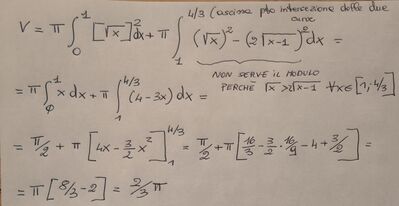 V = π ∫₀¹ [√x]² dx + π ∫₁^{4/3} (√x)² - (2√x-1)² dx =
(ascissa pto intersezione delle due curve
NON SERVE IL MODULO
PERCHÉ √x > 2√x-1 ∀x∈[1,4/3]
= π ∫₀¹ x dx + π ∫₁^{4/3} (4-3x) dx =
= π/2 + π [4x - 3/2 x²]₁^{4/3} = π/2 + π [16/3 - 3/2 · 16/9 - 4 + 3/2] =
= π [8/3 - 2] = 2/3 π